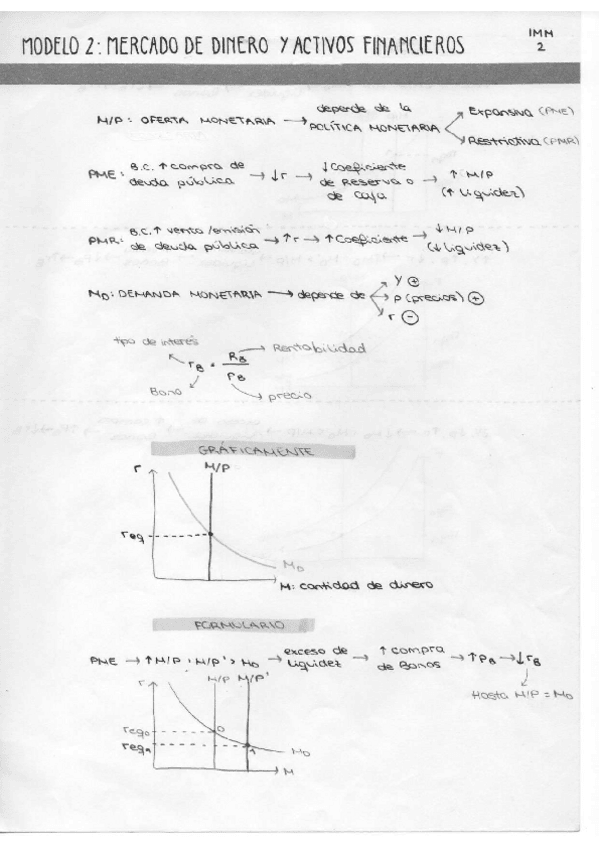 IMM
2
MODELO 2: MERCADO DE DINERO Y ACTIVOS FINANCIEROS
M/P: OFERTA MONETARIA → depende de la POLÍTICA MONETARIA
Expansiva (PME)
Restrictiva (PMR)
PME: B.C. ↑ compra de deuda pública → ↓r → ↓ Coeficiente de Reserva o de Caja → ↑ M/P (↑ Liquidez)
PMR: B.C. ↑ venta/emisión de deuda pública → ↑r → ↑ Coeficiente → ↓ M/P (↓ Liquidez)
MD: DEMANDA MONETARIA → depende de
Y ⊕
P (precios) ⊕
r ⊖
tipo de interés
Rentabilidad
rB = RB / PB
Bono
precio
GRÁFICAMENTE
r
M/P
req
MD
M: cantidad de dinero
FORMULARIO
PME → ↑ M/P : M/P' > MD → exceso de Liquidez → ↑ compra de Bonos → ↑ PB → ↓ rB
Hasta M/P = MD
r
M/P M/P'
req0
0
req1
1
MD
M